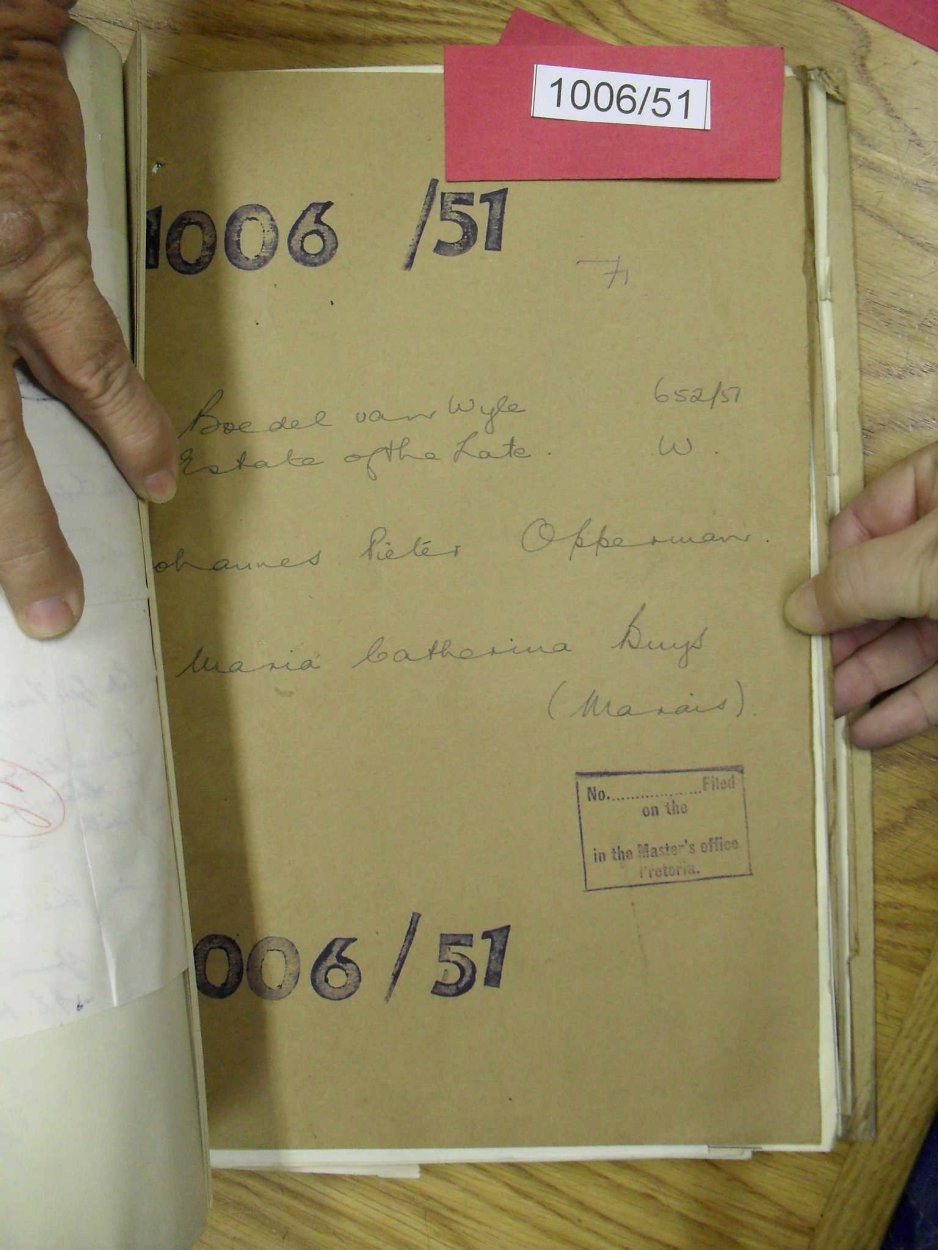 1006/51
1006 /51
71
Boedel van Wyle 652/51
Estate of the Late. W.
ohannes Pieter Opperman.
Maria Catherina Buys
(Marais).
No....................Filed
on the
in the Master's office
Pretoria.
006/51